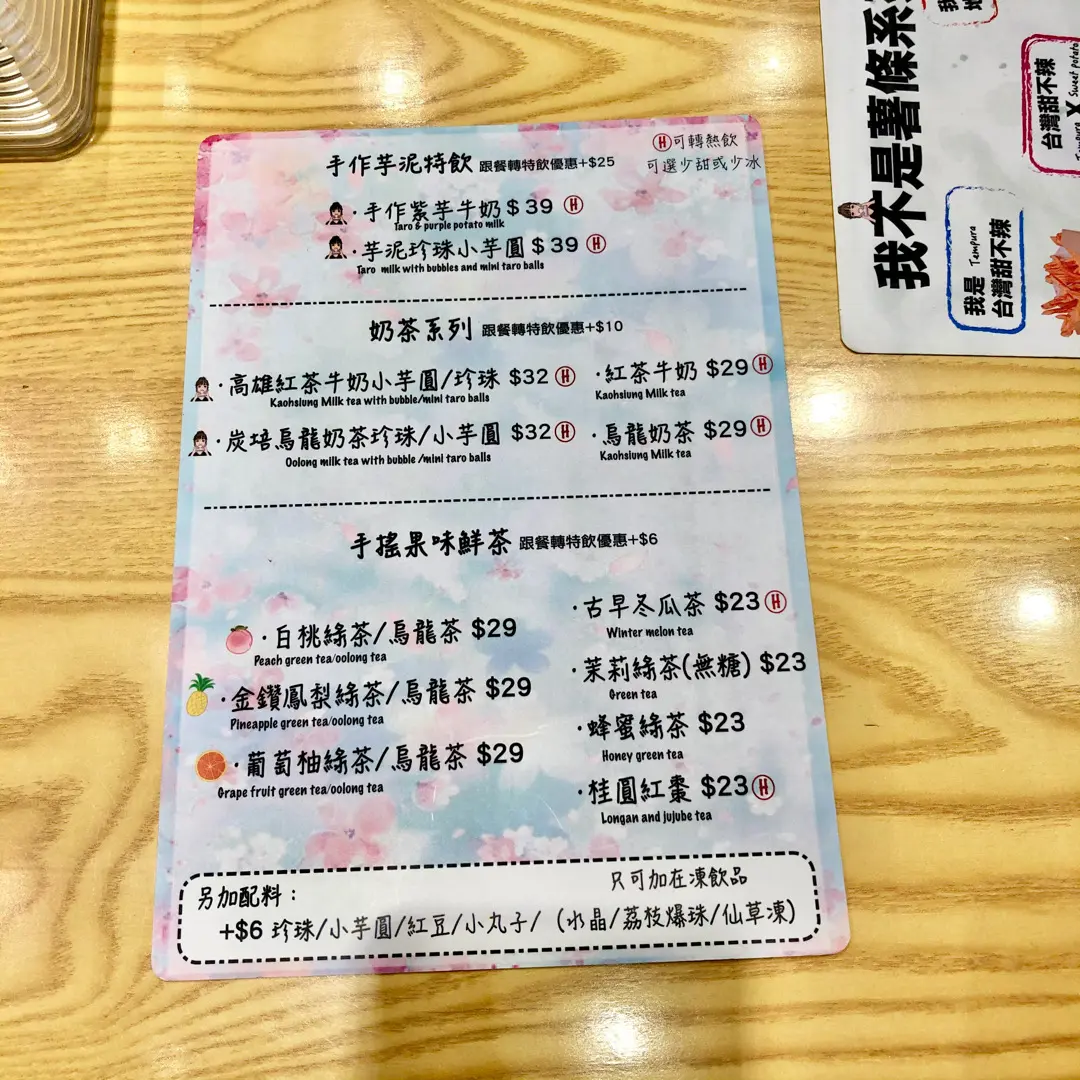 手作芋泥特飲 跟餐轉特飲優惠+$25
Ⓗ可轉熱飲
可選少甜或少冰
·手作紫芋牛奶 $39 Ⓗ
Taro & purple potato milk
·芋泥珍珠小芋圓 $39 Ⓗ
Taro milk with bubbles and mini taro balls
奶茶系列 跟餐轉特飲優惠+$10
·高雄紅茶牛奶小芋圓/珍珠 $32 Ⓗ
Kaohsiung Milk tea with bubble/mini taro balls
·紅茶牛奶 $29 Ⓗ
Kaohsiung Milk tea
·炭培烏龍奶茶珍珠/小芋圓 $32 Ⓗ
Oolong milk tea with bubble /mini taro balls
·烏龍奶茶 $29 Ⓗ
Kaohsiung Milk tea
手搖果味鮮茶 跟餐轉特飲優惠+$6
·白桃綠茶/烏龍茶 $29
Peach green tea/oolong tea
·金鑽鳳梨綠茶/烏龍茶 $29
PIneapple green tea/oolong tea
·葡萄柚綠茶/烏龍茶 $29
Grape fruit green tea/oolong tea
·古早冬瓜茶 $23 Ⓗ
Winter melon tea
·茉莉綠茶(無糖) $23
Green tea
·蜂蜜綠茶 $23
Honey green tea
·桂圓紅棗 $23 Ⓗ
Longan and jujube tea
另加配料：
只可加在凍飲品
+$6 珍珠/小芋圓/紅豆/小丸子/（水晶/荔枝爆珠/仙草凍）
我不是薯條系
我是 Tempura
台灣甜不辣
台灣甜不辣
X Sweet potato